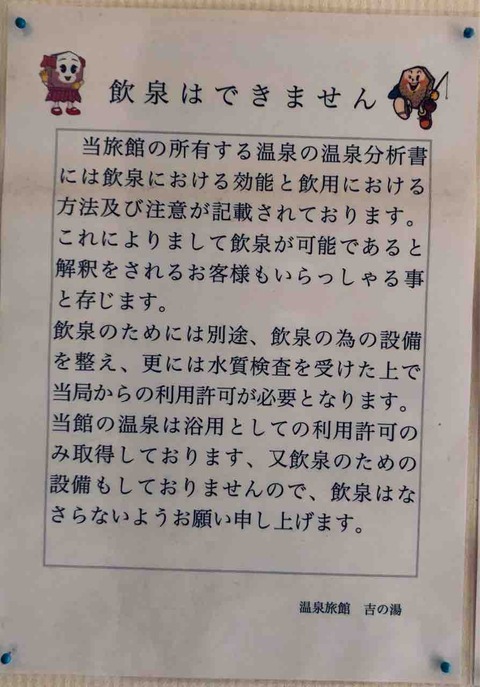 飲泉はできません
当旅館の所有する温泉の温泉分析書
には飲泉における効能と飲用における
方法及び注意が記載されております。
これによりまして飲泉が可能であると
解釈をされるお客様もいらっしゃる事
と存じます。
飲泉のためには別途、飲泉の為の設備
を整え、更には水質検査を受けた上で
当局からの利用許可が必要となります。
当館の温泉は浴用としての利用許可の
み取得しております、又飲泉のための
設備もしておりませんので、飲泉はな
さらないようお願い申し上げます。
温泉旅館 吉の湯